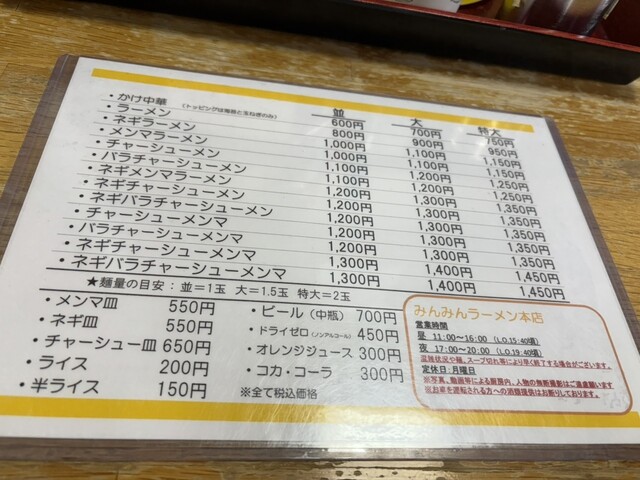 並 大 特大
・かけ中華 (トッピングは海苔と玉ねぎのみ) 600円 700円 750円
・ラーメン 800円 900円 950円
・ネギラーメン 1,000円 1,100円 1,150円
・メンマラーメン 1,000円 1,100円 1,150円
・チャーシューメン 1,100円 1,200円 1,250円
・バラチャーシューメン 1,100円 1,200円 1,250円
・ネギメンマラーメン 1,200円 1,300円 1,350円
・ネギチャーシューメン 1,200円 1,300円 1,350円
・ネギバラチャーシューメン 1,200円 1,300円 1,350円
・チャーシューメンマ 1,200円 1,300円 1,350円
・バラチャーシューメンマ 1,200円 1,300円 1,350円
・ネギチャーシューメンマ 1,300円 1,400円 1,450円
・ネギバラチャーシューメンマ 1,300円 1,400円 1,450円
★麺量の目安：並＝1玉 大＝1.5玉 特大＝2玉
・メンマ皿 550円
・ネギ皿 550円
・チャーシュー皿 650円
・ライス 200円
・半ライス 150円
・ビール（中瓶） 700円
・ドライゼロ(ノンアルコール) 450円
・オレンジジュース 300円
・コカ・コーラ 300円
※全て税込価格
みんみんラーメン本店
営業時間
昼 11:00～16:00 （L.O.15:40頃）
夜 17:00～20:00 （L.O.19:40頃）
混雑状況や麺、スープ切れ等により早く終了する場合がございます。
定休日:月曜日
※写真、動画等による厨房内、人物の無断撮影はご遠慮願います
※お車を運転される方への酒類提供はお断りしております。